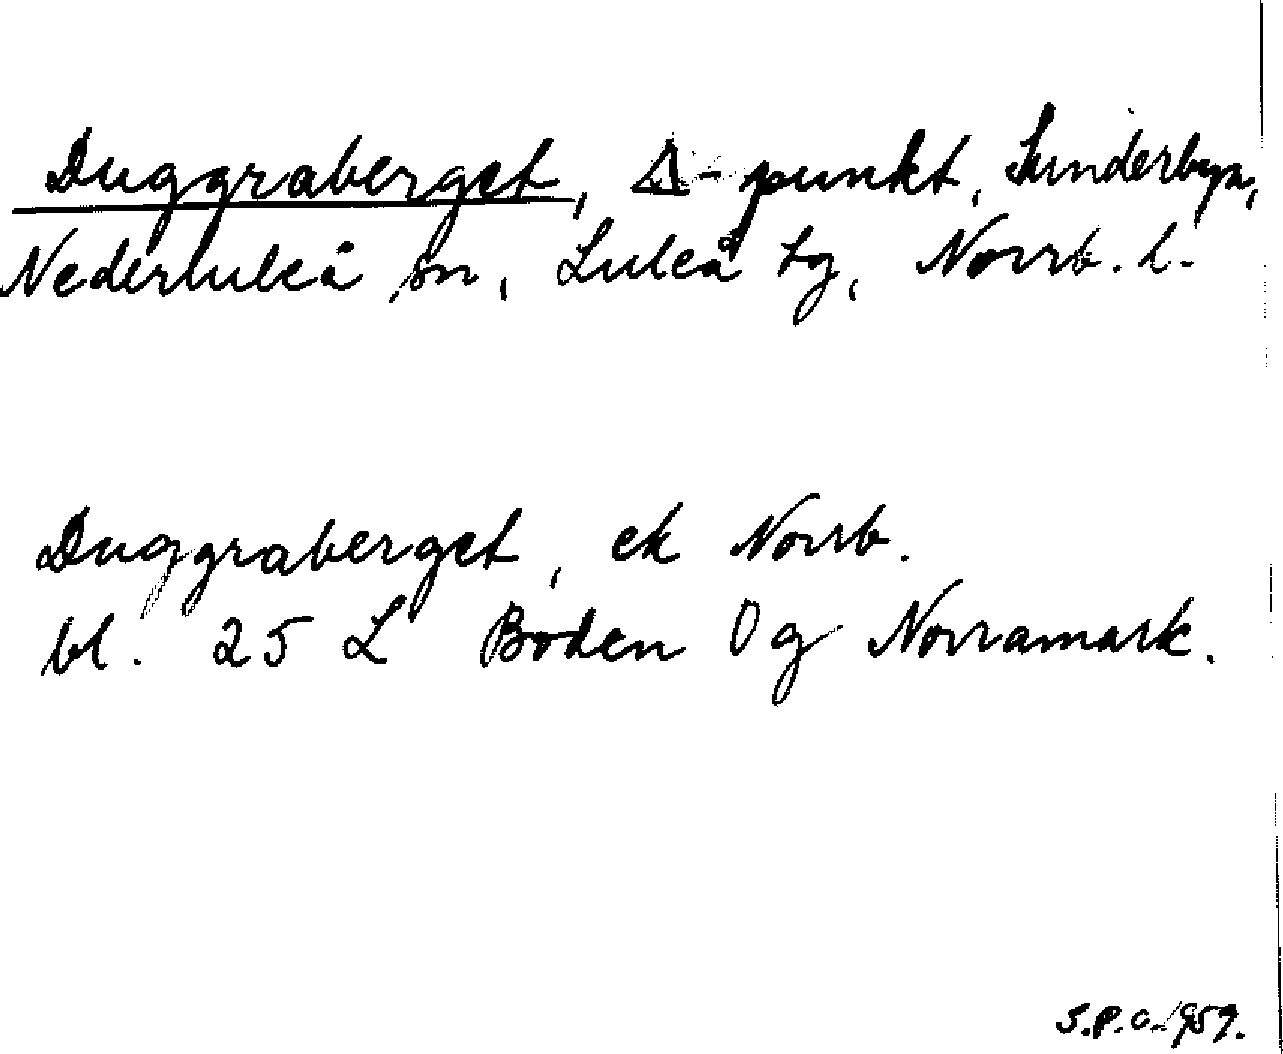 Duggraberget, Δ-punkt, Sunderbyn,
Nederluleå sn, Luleå tg, Norrb. l.
Duggraberget, ek Norrb.
bl. 25 L Boden 0 g Norramark.
S.P.O. 1959.